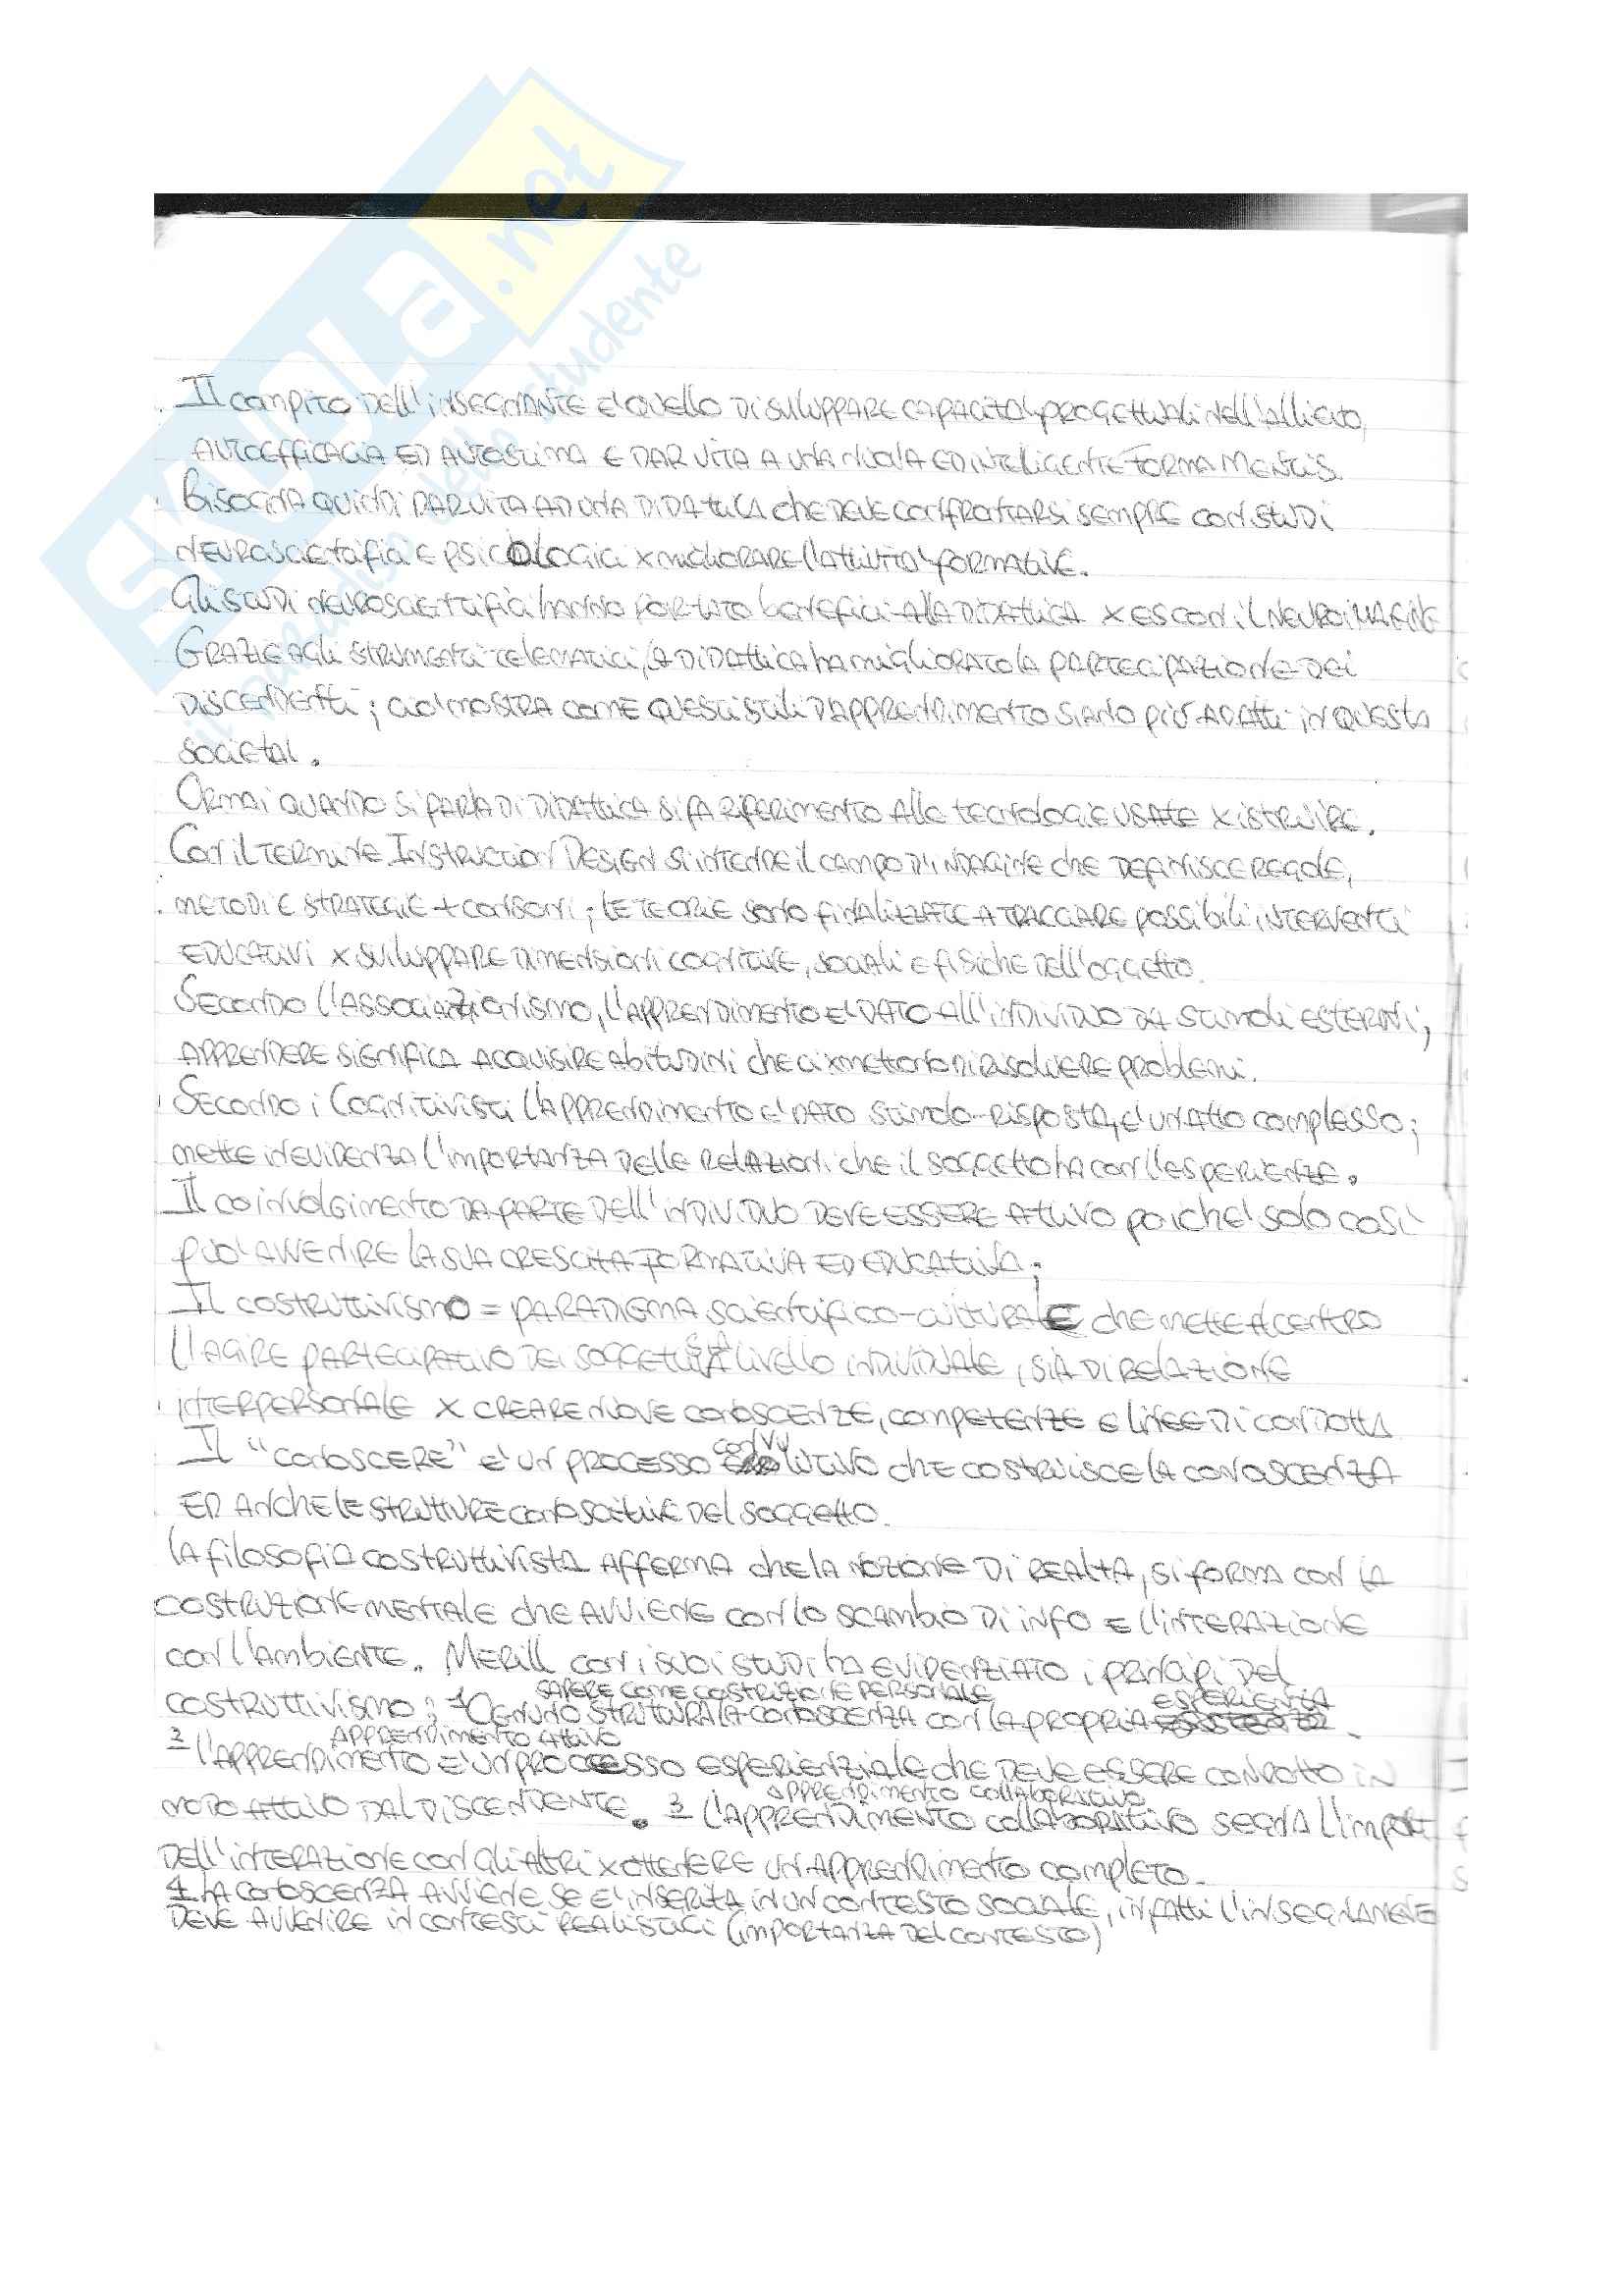 SKUOLA.net
il paradiso dello studente
Il compito dell'insegnante e' quello di sviluppare capacita' progettuali nell'allievo,
autoefficacia ed autostima e dar vita a una nuova ed intelligente forma mentis.
Bisogna quindi dar vita ad una didattica che deve confrontarsi sempre con studi
neuroscientifici e psicologici x migliorare l'attivita' formative.
Gli studi neuroscientifici hanno portato benefici alla didattica x es con il neuroimaging
Grazie agli strumenti telematici, la didattica ha migliorato la partecipazione dei
discendenti; cio' mostra come questi stili d'apprendimento siano più adatti in questa
societa'.
Ormai quando si parla di didattica si fa riferimento alle tecnologie usate x istruire.
Con il termine Instruction Design si intende il campo d'indagine che definisce regole,
metodi e strategie + consoni; le teorie sono finalizzate a tracciare possibili interventi
educativi x sviluppare dimensioni cognitive, sociali e fisiche dell'oggetto.
Secondo l'associazionismo, l'apprendimento e' dato all'individuo da stimoli esterni;
apprendere significa acquisire abitudini che ci xmettono di risolvere problemi.
Secondo i Cognitivisti l'apprendimento e' dato stimolo-risposta, e' un atto complesso;
mette in evidenza l'importanza delle relazioni che il soggetto ha con l'esperienze.
Il coinvolgimento da parte dell'individuo deve essere attivo poiche' solo cosi'
puo' avvenire la sua crescita formativa ed educativa;
Il costruttivismo = paradigma scientifico-culturale che mette al centro
l'agire partecipativo dei soggetti sia a livello individuale, sia di relazione
interpersonale x creare nuove conoscenze, competenze e linee di condotta
Il "conoscere" e' un processo convulutivo che costruisce la conoscenza
ed anche le strutture conoscitive del soggetto.
La filosofia costruttivista afferma che la nozione di realtà, si forma con la
costruzione mentale che avviene con lo scambio di info e l'interazione
con l'ambiente. Merill con i suoi studi ha evidenziato i principi del
sapere come costrizione personale esperienza
costruttivismo: 1 Ognuno struttura la conoscenza con la propria .
apprendimento attivo
2 l'apprendimento e' un processo esperienziale che deve essere condotto in
apprendimento collaborativo
modo attivo dal discendente. 3 l'apprendimento collaborativo segna l'import
dell'interazione con gli altri x ottenere un apprendimento completo.
4 La conoscenza avviene se e' inserita in un contesto sociale, infatti l'insegnamene
deve avvenire in contesti realistici (importanza del contesto)